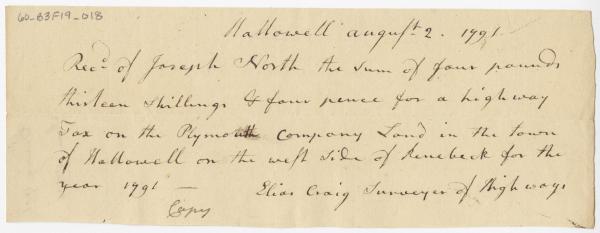 60-B3F19-018
Hallowell august 2. 1791
Rec.d of Joseph North the sum of four pounds
thirteen shillings & four pence for a highway
Tax on the Plymouth company Land in the town
of Hallowell on the west side of Kenebeck for the
year 1791 — Elias Craig Surveyer of Highways
Copy